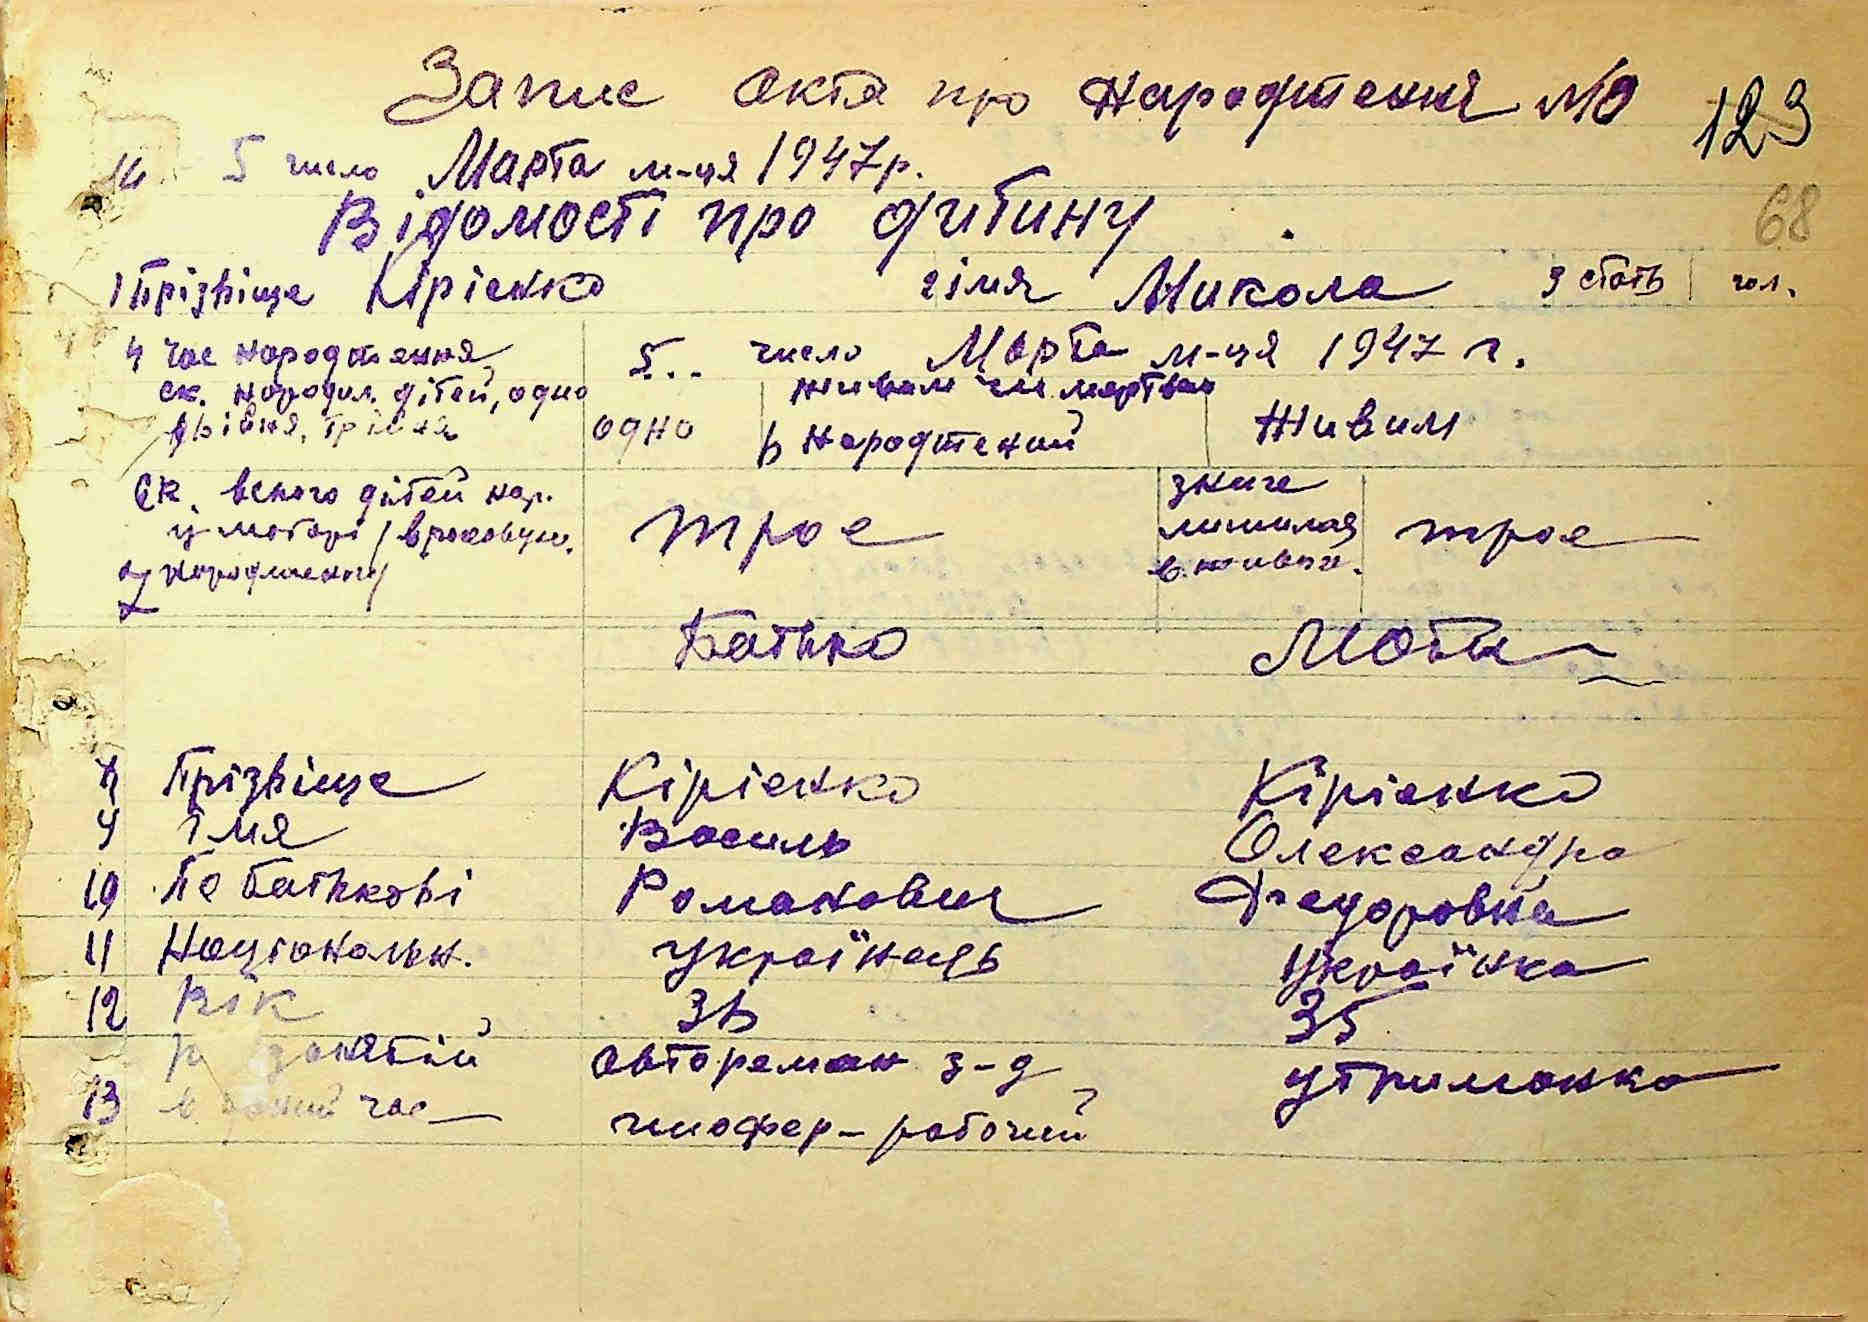 Запис акта про народження № 123
5 число Марта м-ця 1947 р.
68
Відомості про дитину
1 Прізвіще Кірієнко 2 імя Микола 3 стать чол.
4 час народження 5... число Марта м-ця 1947 г.
ск. народил. дітей, одно
двійня, трійня одно живим чи мертвим народжений Живим
Ск. всього дітей нар. у матері / враховую. народженну трое
з них лишилося в живых. трое
Батько Мати
8 Прізвіще Кірієнко Кірієнко
9 імя Василь Олександра
10 По батькові Романович Федоровна
11 Національн. українець українка
12 Вік 36 35
13 занятій авторемон з-д утриманка
час шофер-рабочий